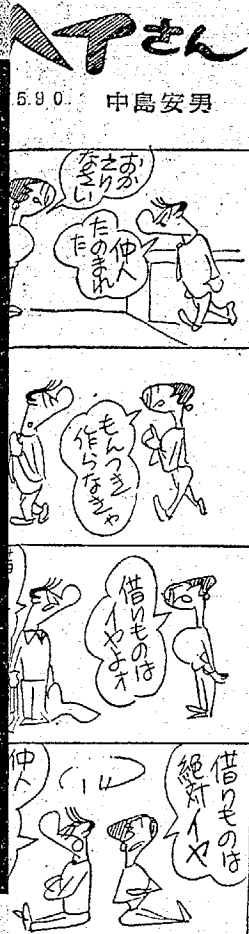 ヘイさん
590 中島安男
おか
えり
なさい
仲人
たのまれ
た
もんつき
作らなきゃ
借りものは
イヤよオ
借
借りものは
絶対イヤ
仲人